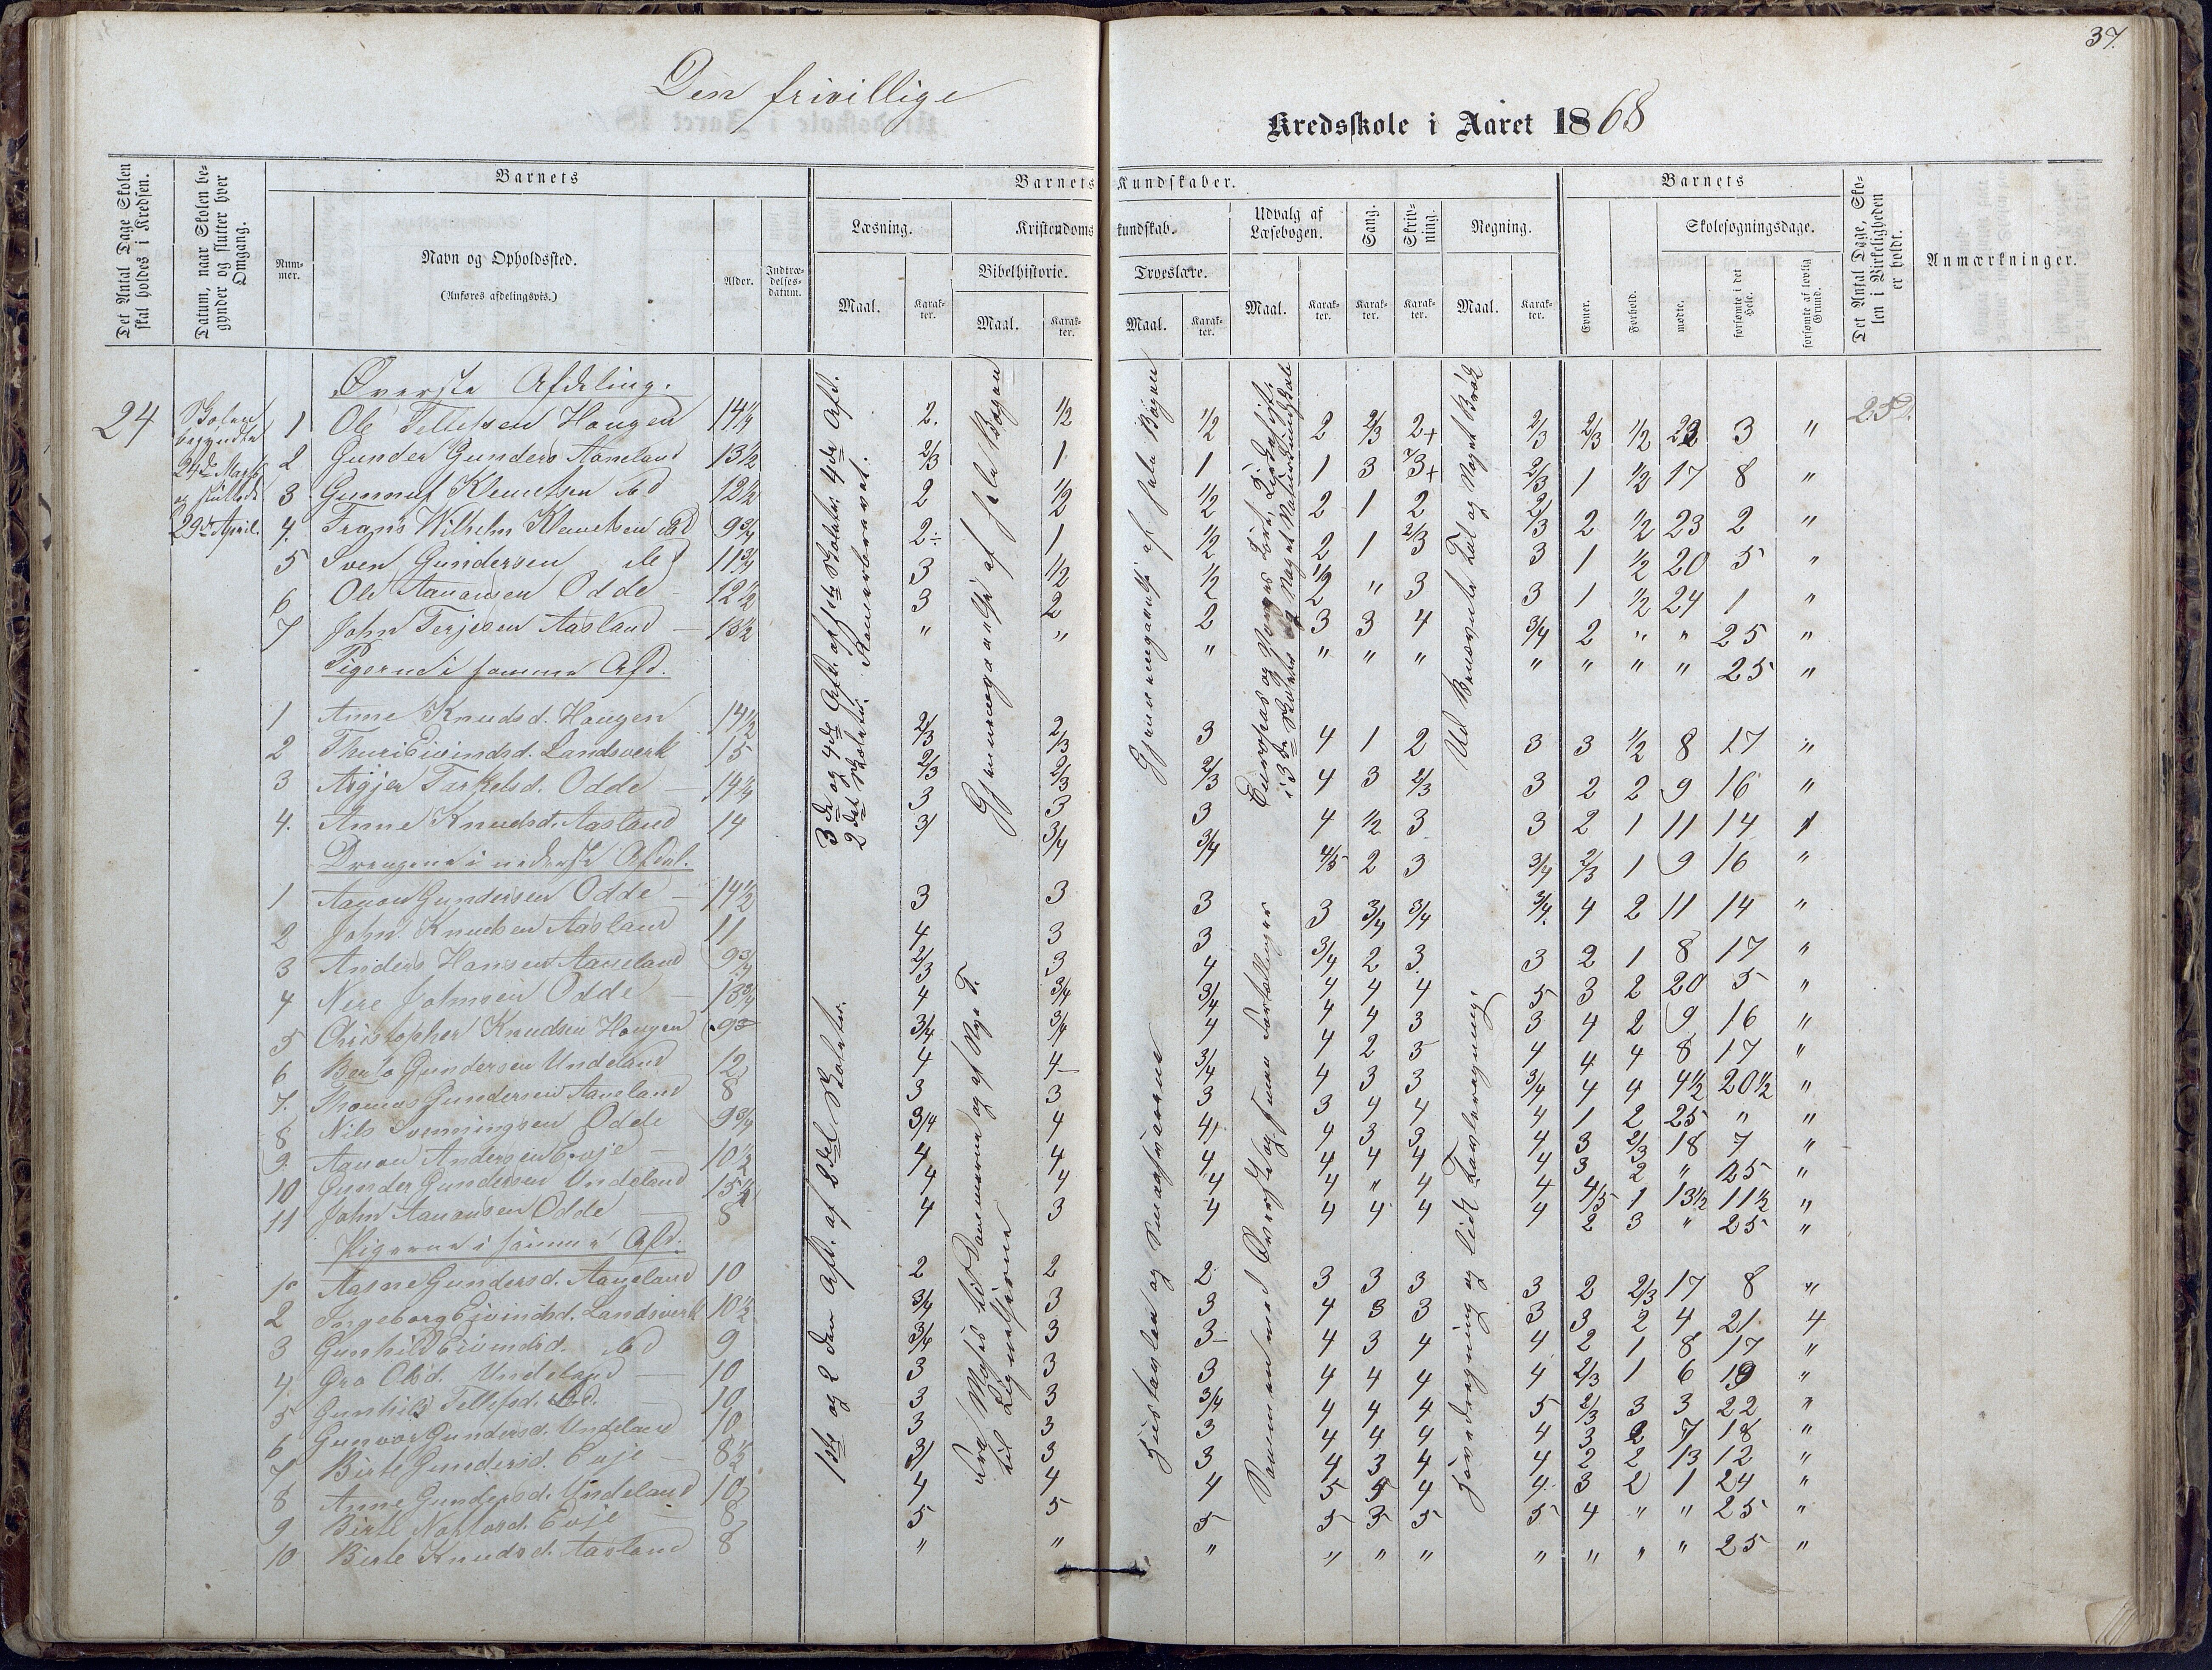 37.
Den frivillige
Kredsskole i Aaret 1868
Det Antal Dage Skolen skal holdes i Kredsen.
Datum, naar Skolen begynder og slutter hver Omgang.
Barnets
Nummer.
Navn og Opholdssted.
(Anføres afdelingsvis.)
Alder.
Indtrædelsesdatum.
Barnets Kundskaber.
Læsning.
Maal.
Karakter.
Kristendomskundskab.
Bibelhistorie.
Maal.
Karakter.
Troeslære.
Maal.
Karakter.
Udvalg af Læsebogen.
Maal.
Karakter.
Sang.
Karakter.
Skrivning.
Karakter.
Regning.
Maal.
Karakter.
Barnets
Evner.
Forhold.
Skolesøgningsdage.
mødte.
forsømte i det Hele.
forsømte af lovlig Grund.
Det Antal Dage, Skolen i Virkeligheden er holdt.
Anmærkninger.
Øverste Afdeling.
24 Skolen begyndte 24de Marts og sluttede 29de April.
1 Ole Tellefsen Haugen 14¼ 2. 1/2 1/2 2 2/3 2+ 2/3 2/3 1/2 22 3 " 25
2 Gunder Gunders Aaneland 13½ 2/3 1 1 1 3 3+ 2/3 1 1/2 17 8 "
3 Gunnuf Klemetsen ibd 12½ 2 1/2 1/2 2 1 2 2/3 2 1/2 23 2 "
4. Frans Wilhelm Klemetsen ibd 9¾ 2÷ 1 1/2 2 1 2/3 3 1 1/2 20 5 "
5 Sven Gundersen ibd 11¾ 3 1/2 1/2 1/2 " 3 3 1 1/2 24 1 "
6 Ole Aanonsen Odde 12½ 3 2 2 3 3 4 3/4 2 " " 25 "
7 John Terjesen Aasland 13½ " " " " " " " " " " 25 "
Pigerne i samme Afd.
1 Anne Knudsd. Haugen 14½ 2/3 2/3 3 4 1 2 3 3 1/2 8 17 "
2 Thuri Eivindsd. Landsverk 15 2/3 2/3 2/3 4 3 2/3 3 2 2 9 16 "
3 Asgjer Tarkelsd. Odde 14¼ 3 3 3 4 1/2 3 3 2 1 11 14 "
4. Anne Knudsd. Aasland 14 3/ 3/4 3/4 4/5 2 3 3/4 2/3 1 9 16 "
Drengene i nederste Afdel.
1 Aanon Gundersen Odde 14½ 3 3 3 3 3/4 3/4 3/4. 4 2 11 14 "
2 John Knudsen Aasland 11 4 3 3 3/4 2 3. 3 2 1 8 17 "
3 Anders Hansen Aaneland 9¾ 2/3 3 4 4 4 4 5 3 2 20 5 "
4 Nere Johnsen Odde 13¾ 4 3/4 3/4 4 4 3 3 4 2 9 16 "
5 Christopher Knudsen Haugen 9¾ 3/4 3/4 4 4 2 5 4 4 4 8 17 "
6 Bent Gundersen Undeland 12 4 4 3/4 4 3 3 3/4 4 4 4½ 20½ "
7. Thomas Gundersen Aaneland 8 3 3 3 3 4 4 4 1 2 25 " "
8 Nils Svenningsen Odde 9¾ 3/4 4 4 4 3 3 4 3 2/3 18 7 "
9. Aanon Andersen Evje 10½ 4 4 4 4 4 4 4 3 2 " 25 "
10 Gunder Gundersen Undeland 15½ 4 4 4 4 " 4 4 4/5 1 13½ 11½ "
11 John Aanonsen Odde 8 4 3 4 4 4 4 4 2 3 " 25 "
Pigerne i samme Afd.
1 Aasne Gundersd. Aaneland 10 2 2 2 3 3 3 3 2 2/3 17 8 "
2 Ingeborg Eivindsd. Landsverk 10½ 3/4 3 3 4 3 3 3 3 2 4 21 4
3 Gunhild Eivindsd. ibd 9 3/4 3 3 4 3 4 4 2 1 8 17 "
4 Gro Olsd. Undeland 10 3 3 3 4 4 4 4 2/3 1 6 19 "
5 Gunhild Tellefsd. ibd. 10 3 3 3/4 4 4 4 5 2/3 3 3 22 "
6 Gunvor Gundersd. Undeland 10 3 3 3 4 4 4 4 3 2 7 18 "
7 Birte Gundersd. Evje 8½ 3/ 3 3 4 3 4 4 2 2 13 12 "
8 Anne Gundersd. Undeland 10 4 4 4 5 4 4 4. 3 2 1 24 "
9 Birte Nottosd. Evje 8 5 5 5 5 3 5 5 4 " " 25 "
10 Birte Knudsd. Aasland 8 " " " " " " " " " " 25 "
3de og 4de Afd. af 1ste Skoletr. 4de Afd.
2det Skoletr.
Gjennemgaaelse af hele Bogen
Gjennemgaaelse af hele Bogen
i 3de Skoletr. og Noget
Ubenævnte Tal og Noget Brøk
1ste og 2den Afd. af 2det Skoletr.
Fra Moses til Dommerne og af Nye T.
til Lignelserne